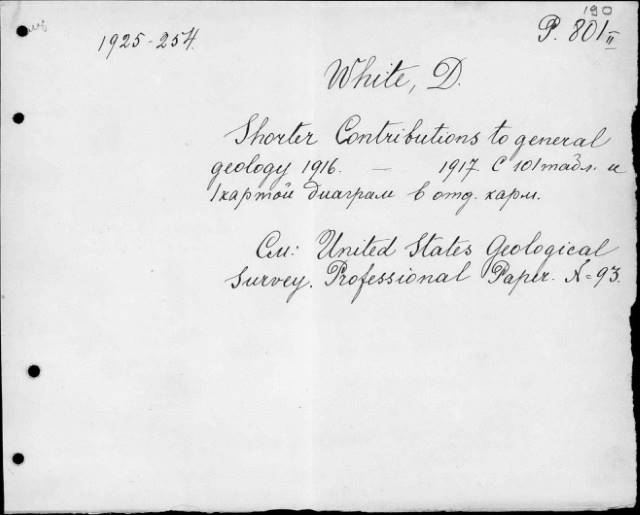 190
1925-254.
P. 801 II
White, D.
Shorter Contributions to general
geology 1916. — 1917. С 101 табл. и
1 картой диаграм в отд. карм.
См: United States Geological
Survey. Professional Paper. №=93.